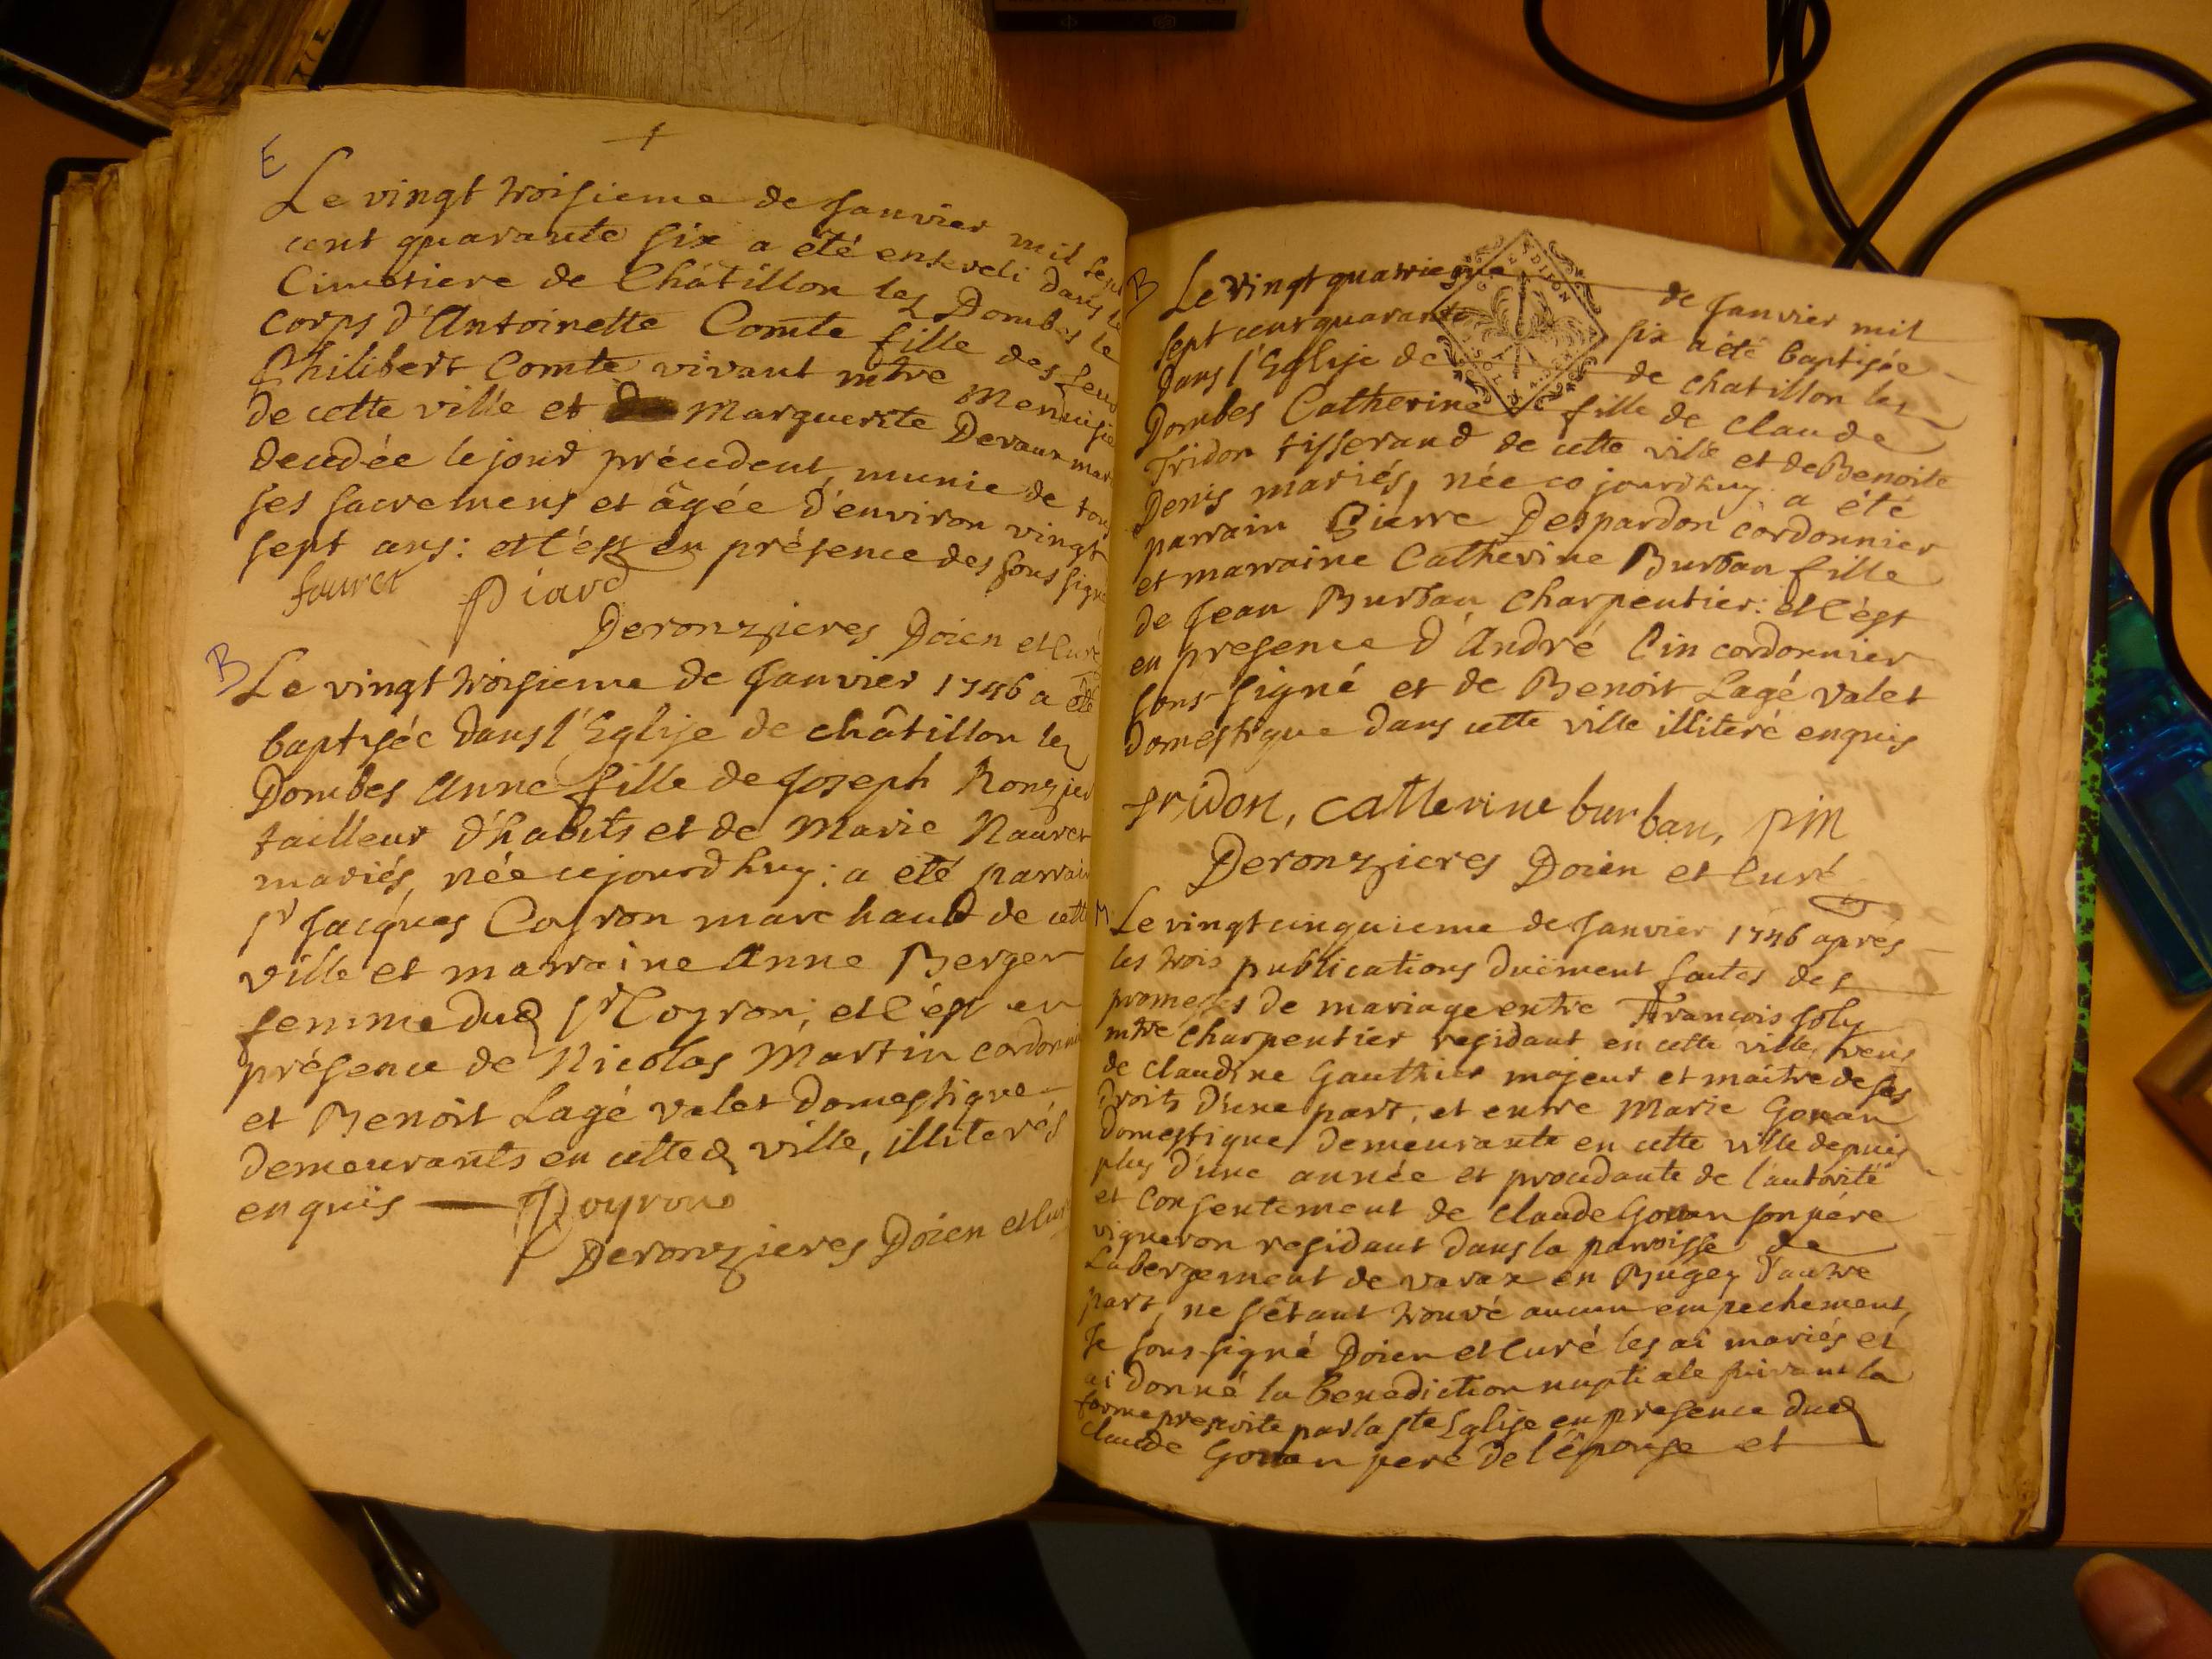 E
Le vingt troisieme de Janvier mil sept
cent quarante six a été enseveli dans le
Cimetiere de Châtillon les Dombes le
corps d'Antoinette Comte fille des feus
Philibert Comte vivant mtre Menuisie
de cette ville et Marguerite Devaux mar
decedée le jour précedent, munie de tous
ses sacremens et âgée d'environ vingt
sept ans: et c'est en présence des sous signé
fauret Piard
Deronzieres Doien et Curé
B
Le vingt troisieme de Janvier 1746 a été
baptisée dans l'Eglise de châtillon les
Dombes Anne fille de Joseph Ronzier
tailleur d'habits et de Marie Nauret
mariés, née cejourd'huy: a été parrain
sr Jacques Coyron marchand de cette
ville et marraine Anne Berger
femme dud sr Coyron; et c'est en
présence de Nicolas Martin cordonni
et Benoît Lagé valet domestique
demeurants en cette d ville, illiterés
enquis
Deronzieres Doien et Curé
B
Le vingt quatrieme de Janvier mil
sept cent quarante six a été baptisée
dans l'Eglise de de chatillon les
Dombes Catherine fille de Claude
Tridon tisserand de cette ville et de Benoite
Denis mariés, née ce jourd'huy: a été
parrain Pierre Despardon cordonnier
et marraine Catherine Burban fille
de Jean Burban Charpentier: et c'est
en presence d'André Pin cordonnier
sous-signé et de Benoit Lagé valet
domestique dans cette ville illiteré enquis
tridon, catherine burban, pin
Deronzieres Doien et Curé
M
Le vingt cinquieme de Janvier 1746 aprés
les trois publications duëment faites des
promesses de mariage entre François Joly
mtre Charpentier residant en cette ville, veuf
de Claudine Gauthier majeur et maitre de ses
droits d'une part, et entre Marie Gouan
domestique demeurante en cette ville depuis
plus d'une année et procedante de l'autorité
et consentement de Claude Gouan son pére
vigneron residant dans la parroisse de
Labergement de varax en Bugey d'autre
part, ne s'étant trouvé aucun empechement,
Je sous-signé Doien et Curé les ai mariés et
ai donné la benediction nuptiale suivant la
forme prescrite par la ste Eglise en presence dud
Claude Gouan pere de l'épouse et